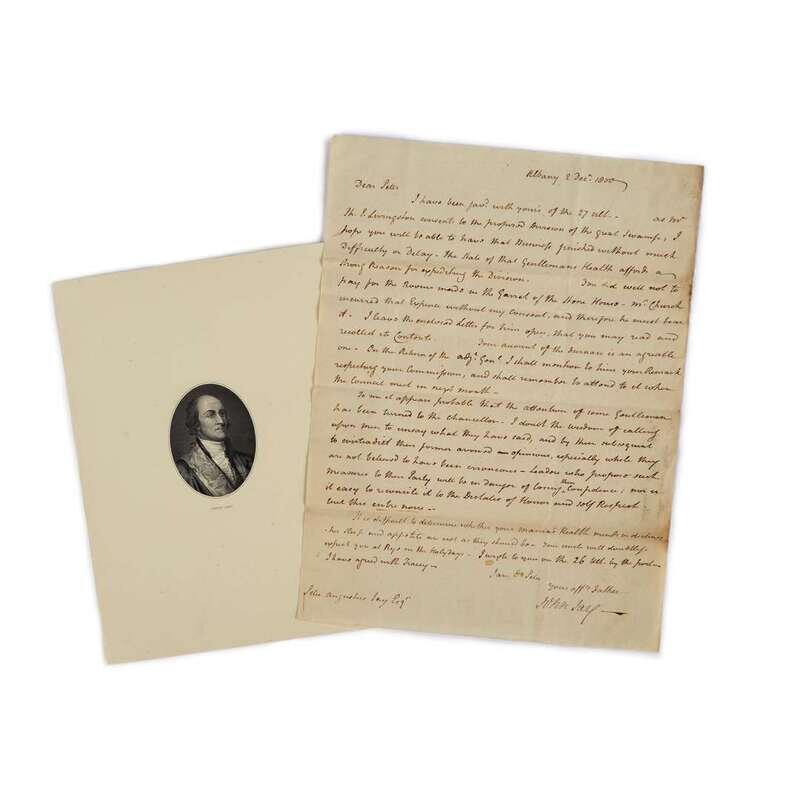 Albany 2 Decr. 1800
Dear Peter
I have been favd. with yours of the 27 ult. - as Mr
P. Livingston consents to the proposed Division of the great Swamp, I
hope you will be able to have that Business finished without much
Difficulty or Delay. The State of that Gentlemans Health affords a
strong Reason for expediting the Division. You did well not to
pay for the Rooms made in the Garret of the Stone House - Mr Church
incurred that Expence without my Consent, and therefore he must bear
it - I leave the enclosed Letter for him open, that you may read and
recollect its Contents. Your account of the Furnace is an agreable
one - On the Return of the adjt. Genl. I shall mention to him your Remark
respecting your Commission, and shall remember to attend to it when
the Council meet in next month -
To me it appears probable that the attention of some Gentlemen
has been turned to the Chancellor - I doubt the wisdom of calling
upon men to unsay what they have said, and by their subsequent
to contradict their former avowed opinions, especially while they
are not believed to have been erroneous - Leaders who propose such
measures to their Party will be in danger of losing their Confidence; nor is
it easy to reconcile it to the Dictates of Honor and self Respect -
but this entre nous -
It is difficult to determine whether your mama's Health mends or declines
- her sleep and appetite are not as they should be - your uncle will doubtless
expect you at Rye in the Holydays - I wrote to you on the 26 ult. by the post -
I have agreed with Tracey -
I am Dr. Peter
Your afft. Father
John Jay
Peter Augustus Jay Esqr.